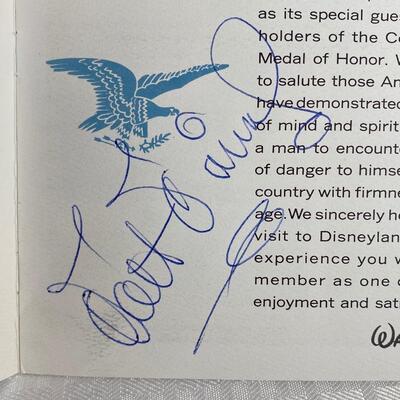 as its special gues
holders of the Co
Medal of Honor. W
to salute those Am
have demonstrated
of mind and spirit
a man to encounte
of danger to himse
country with firmne
age. We sincerely ho
visit to Disneylan
experience you w
member as one o
enjoyment and sati
WA